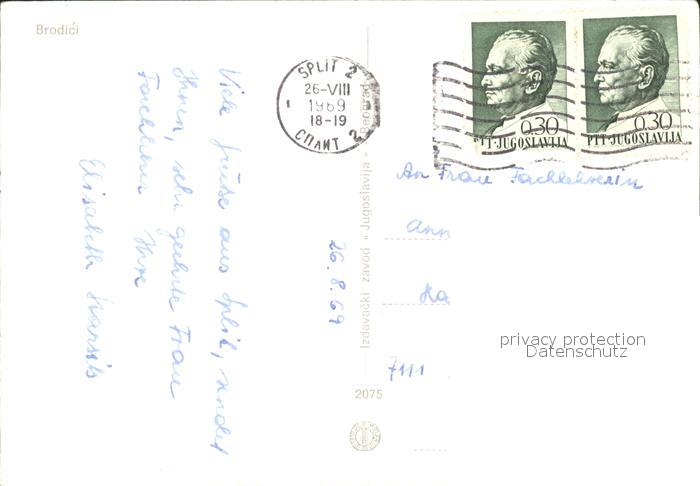 Brodići
SPLIT 2
26-VIII
1969
18-19
СПЛИТ 2
0.30
PTT-JUGOSLAVIJA
0.30
PTT-JUGOSLAVIJA
An Frau Fachlehrerin
Ann
Ha
7111
Viele Grüße aus Split, sendet
Ihnen, sehr geehrte Frau
Fachlehrer Ihre
Elisabeth
26.8.69
Izdavački zavod "Jugoslavija" Beograd
2075
privacy protection
Datenschutz